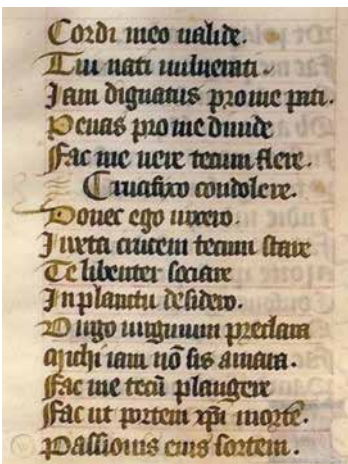 Cordi meo ualide.
Tui nati uulnerati.
Jam dignatus pro me pati.
Penas pro me diuide
Fac me uere tecum flere.
Crucifixo condolere.
Donec ego uixero.
Juxta crucem tecum stare
Te libenter sociare
In planctu desidero.
Uirgo uirginum preclara
Michi iam nō sis amara.
Fac me tecū plangere
Fac ut portem xp̄i morte.
Passionis eius sortem.